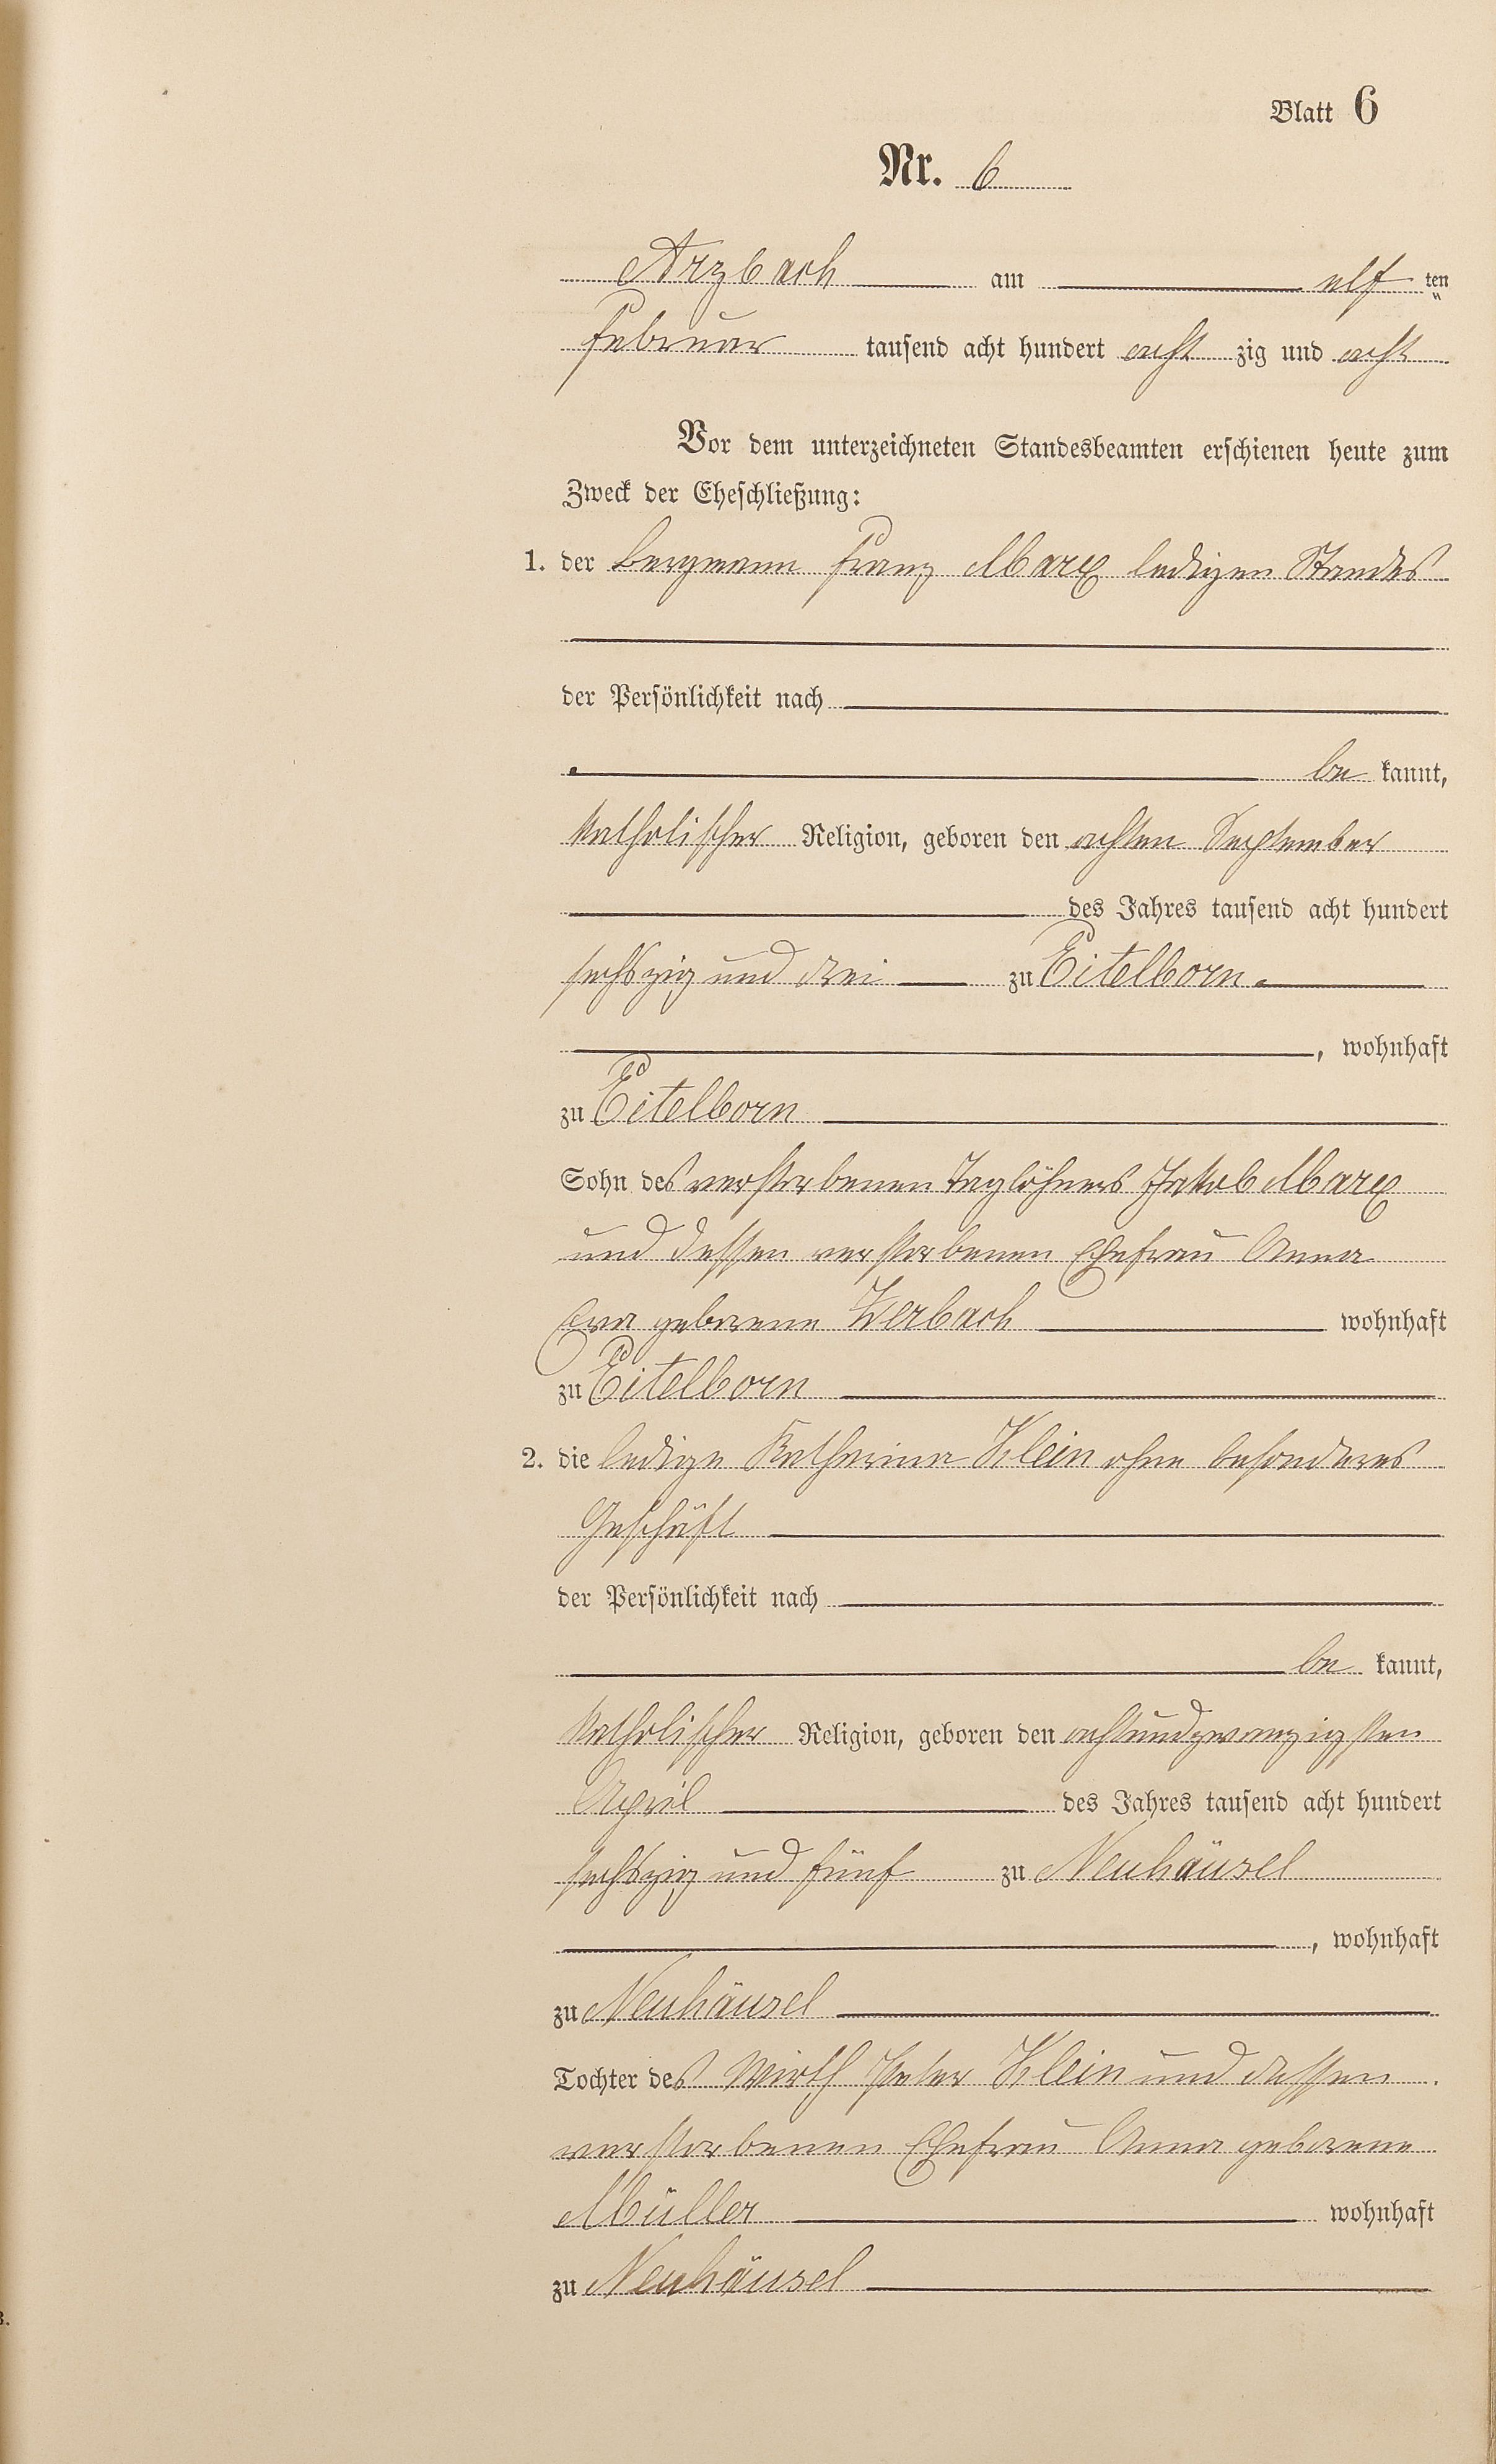 Blatt 6
Nr. 6
Arzbach am elf ten
Februar tausend acht hundert acht zig und acht
Vor dem unterzeichneten Standesbeamten erschienen heute zum
Zweck der Eheschließung:
1. der Bergmann Franz Marx ledigen Standes
der Persönlichkeit nach
be kannt,
katholischer Religion, geboren den achten September
des Jahres tausend acht hundert
sechszig und drei zu Eitelborn
, wohnhaft
zu Eitelborn
Sohn des verstorbenen Taglöhners Jakob Marx
und dessen verstorbenen Ehefrau Anna
Eva geborene Werbach wohnhaft
zu Eitelborn
2. die ledige Katharina Klein ohne besonderes
Geschäft
der Persönlichkeit nach
be kannt,
katholischer Religion, geboren den achtundzwanzigsten
April des Jahres tausend acht hundert
sechszig und fünf zu Neuhäusel
, wohnhaft
zu Neuhäusel
Tochter des Wirth Peter Klein und dessen
verstorbenen Ehefrau Anna geborene
Müller wohnhaft
zu Neuhäusel